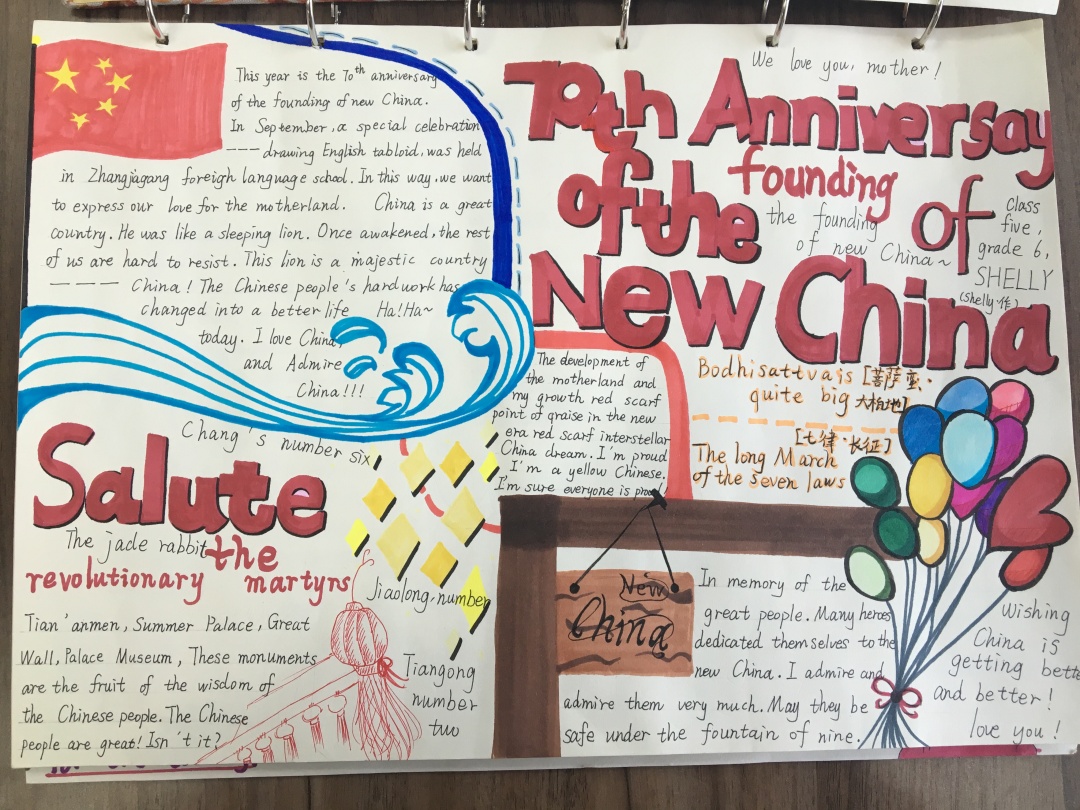 This year is the 70th anniversary
of the founding of new China.
In September, a special celebration
---- drawing English tabloid, was held
in Zhangjiagang foreigh language school. In this way, we want
to express our love for the motherland. China is a great
country. He was like a sleeping lion. Once awakened, the rest
of us are hard to resist. This lion is a majestic country
---- China! The Chinese people's hard work has
changed into a better life Ha!Ha~
today. I love China,
and Admire
China!!!
We love you, mother!
70th Anniversay
of the founding of
the founding
of new China~
New China
class
five,
grade 6,
SHELLY
(Shelly·作)
The development of
the motherland and
my growth red scarf
point of graise in the new
era red scarf interstellar
China dream. I'm proud
I'm a yellow Chinese.
I'm sure everyone is
Bodhisattva is [菩萨蛮·
quite big 大柏地]
[七律·长征]
The long March
of the seven laws
Chang's number six
Salute
The jade rabbit
the
revolutionary martyrs
Jiaolong number
Tian'anmen, Summer Palace, Great
Wall, Palace Museum, These monuments
are the fruit of the wisdom of
the Chinese people. The Chinese
people are great! Isn't it?
Tiangong
number
two
New
China
In memory of the
great people. Many heroes
dedicated themselves to the
new China. I admire and
admire them very much. May they be
safe under the fountain of nine.
Wishing
China is
getting bette
and better!
love you!